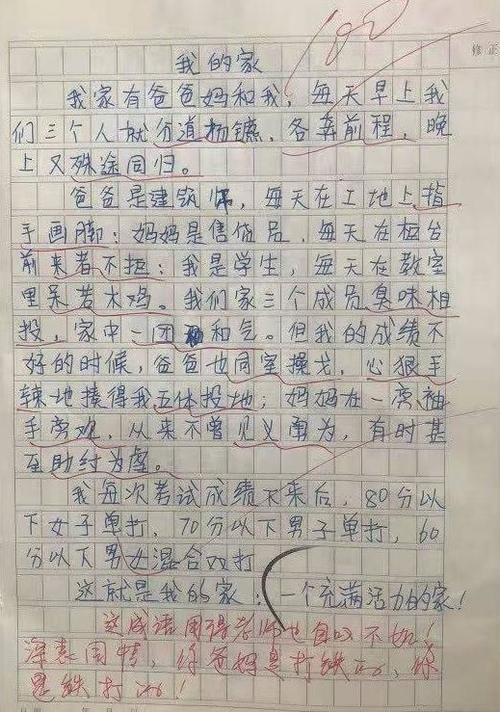 100
修正
我的家
我家有爸爸妈和我，每天早上我
们三个人就分道杨镳，各奔前程，晚
上又殊途同归。
爸爸是建筑师，每天在工地上指
手画脚；妈妈是售货员，每天在柜台
前来者不拒；我是学生，每天在教室
里呆若木鸡。我们家三个成员臭味相
投，家中一团和气。但我的成绩不
好的时候，爸爸也同室操戈，心狠手
辣地揍得我五体投地；妈妈在一旁袖
手旁观，从来不曾见义勇为，有时甚
至助纣为虐。
我每次考试成绩下来后，80分以
下女子单打，70分以下男子单打，60
分以下男女混合双打
这就是我的家：一个充满活力的家！
这成语用得老师也自以不如！
深表同情，你爸妈是打铁的，你
是铁打的！